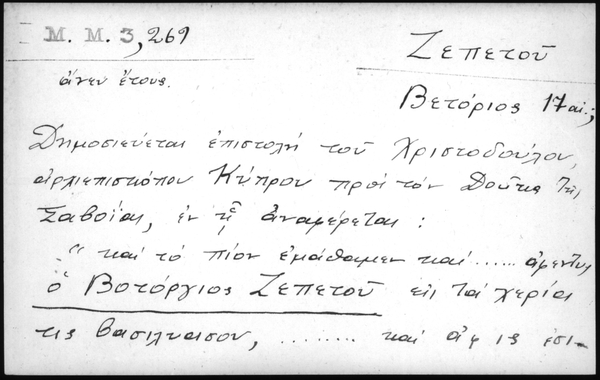 M. M. 3, 269
Ζεπετοῦ
ἄνευ ἔτους.
Βετόριος 17 αἰ.;
Δημοσιεύεται ἐπιστολή τοῦ Χριστοδούλου,
ἀρχιεπισκόπου Κύπρου πρός τόν Δοῦκα τῆς
Σαβοΐας, ἐν ᾗ ἀναφέρεται:
"καί τό πῖον ἐμάθαμεν καί ......
ὁ Βοτόργιος Ζεπετοῦ εἰς τά χερία
τις βασιλιασου, ........ καί ἀφ ις ἐσι-